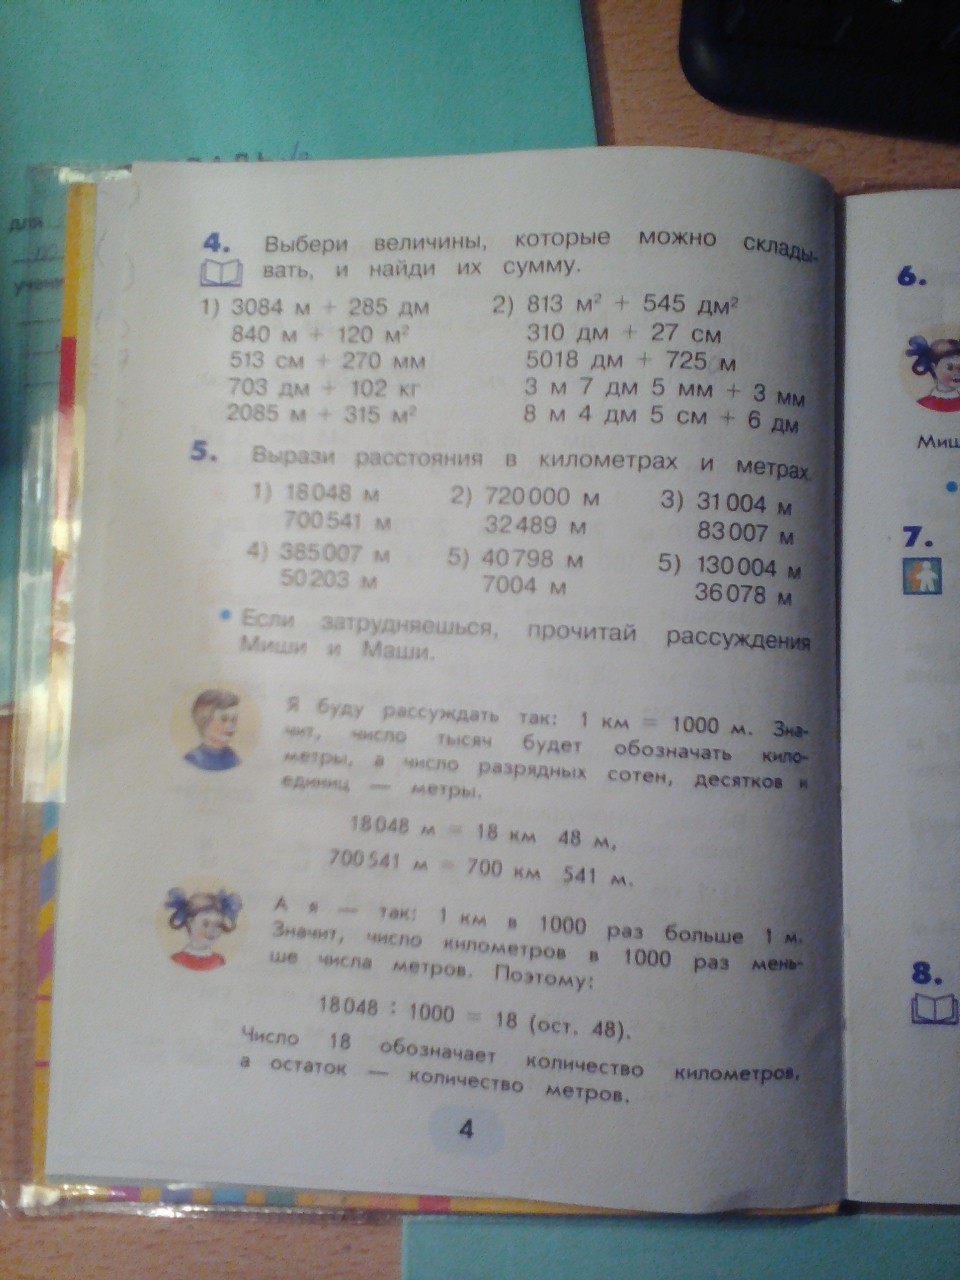 для
4. Выбери величины, которые можно склады-
вать, и найди их сумму.
1) 3084 м + 285 дм
840 м + 120 м²
513 см + 270 мм
703 дм + 102 кг
2085 м + 315 м²
2) 813 м² + 545 дм²
310 дм + 27 см
5018 дм + 725 м
3 м 7 дм 5 мм + 3 мм
8 м 4 дм 5 см + 6 дм
5. Вырази расстояния в километрах и метрах.
1) 18048 м
700541 м
2) 720000 м
32489 м
3) 31004 м
83007 м
4) 385007 м
50203 м
5) 40798 м
7004 м
5) 130004 м
36078 м
• Если затрудняешься, прочитай рассуждения
Миши и Маши.
Я буду рассуждать так: 1 км = 1000 м. Зна-
чит, число тысяч будет обозначать кило-
метры, а число разрядных сотен, десятков и
единиц — метры.
18048 м = 18 км 48 м,
700541 м = 700 км 541 м.
А я — так: 1 км в 1000 раз больше 1 м.
Значит, число километров в 1000 раз мень-
ше числа метров. Поэтому:
18048 : 1000 = 18 (ост. 48).
Число 18 обозначает количество километров,
а остаток — количество метров.
4
6.
Миш
7.
8.